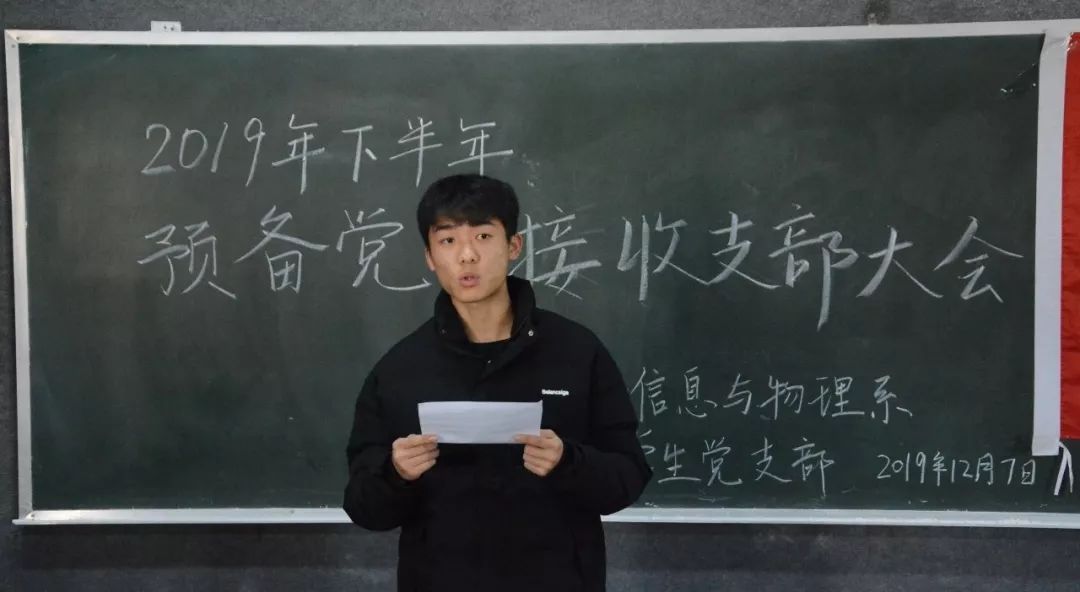 2019年下半年
预备党 接收支部大会
信息与物理系
生党支部 2019年12月7日
Balenciaga